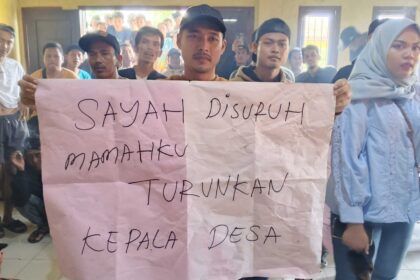 SAYAH DISURUH
MAMAHKU
TURUNKAN
KEPALA DESA